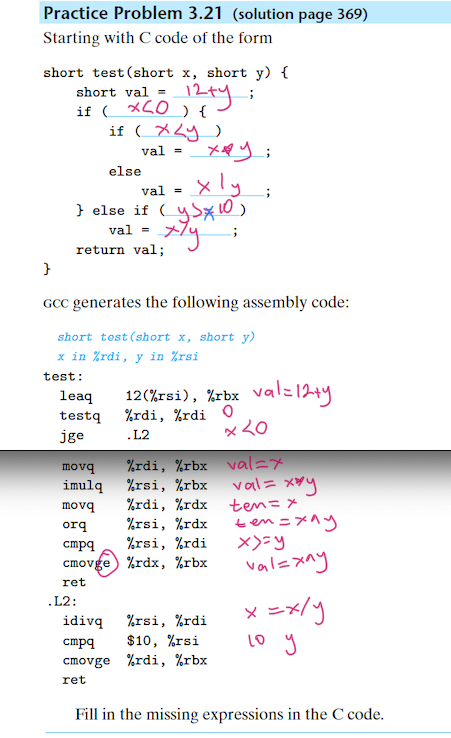 Practice Problem 3.21 (solution page 369)
Starting with C code of the form
short test(short x, short y) {
short val = 12+y ;
if ( x<0 ) {
if ( x<y )
val = x*y ;
else
val = x|y ;
} else if ( y>= 10 )
val = x/y ;
return val;
}
GCC generates the following assembly code:
short test(short x, short y)
x in %rdi, y in %rsi
test:
leaq 12(%rsi), %rbx val=12+y
testq %rdi, %rdi 0
jge .L2 x<0
movq %rdi, %rbx val=x
imulq %rsi, %rbx val= x*y
movq %rdi, %rdx tem= x
orq %rsi, %rdx tem=x^y
cmpq %rsi, %rdi x>=y
cmovge %rdx, %rbx val=x^y
ret
.L2:
idivq %rsi, %rdi x =x/y
cmpq $10, %rsi 10 y
cmovge %rdi, %rbx
ret
Fill in the missing expressions in the C code.